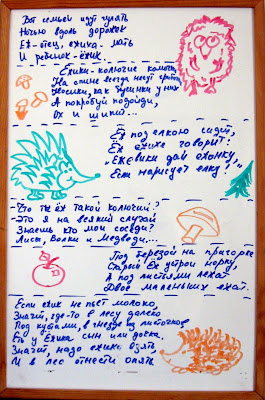 Вот семьёй идут гулять
Ночью вдоль дорожек
Ёж-отец, ежиха-мать
И ребёнок-ёжик.
Ёжики-колючие комочки,
На спине всегда несут грибочки
Носики, как бусинки у них
А попробуй подойди,
Ох и шипит...
Ёж под ёлкою сидит,
Ёж ежихе говорит:
"Ежевики дай охапку,
Если нарисует ёлку!"
Что ты ёж такой колючий?
-Это я на всякий случай
Знаешь кто мои соседи?
Лисы, Волки и Медведи...
Под берёзой на пригорке
Старый ёж устроил норку,
А под листьями лежат
Двое маленьких ежат.
Если ёжик не пьёт молоко,
Значит, где-то в лесу далеко
Под кустами, в гнезде из листочков
Есть у ёжика сын или дочка.
Значит, надо ежика взять
И в лес отнести опять